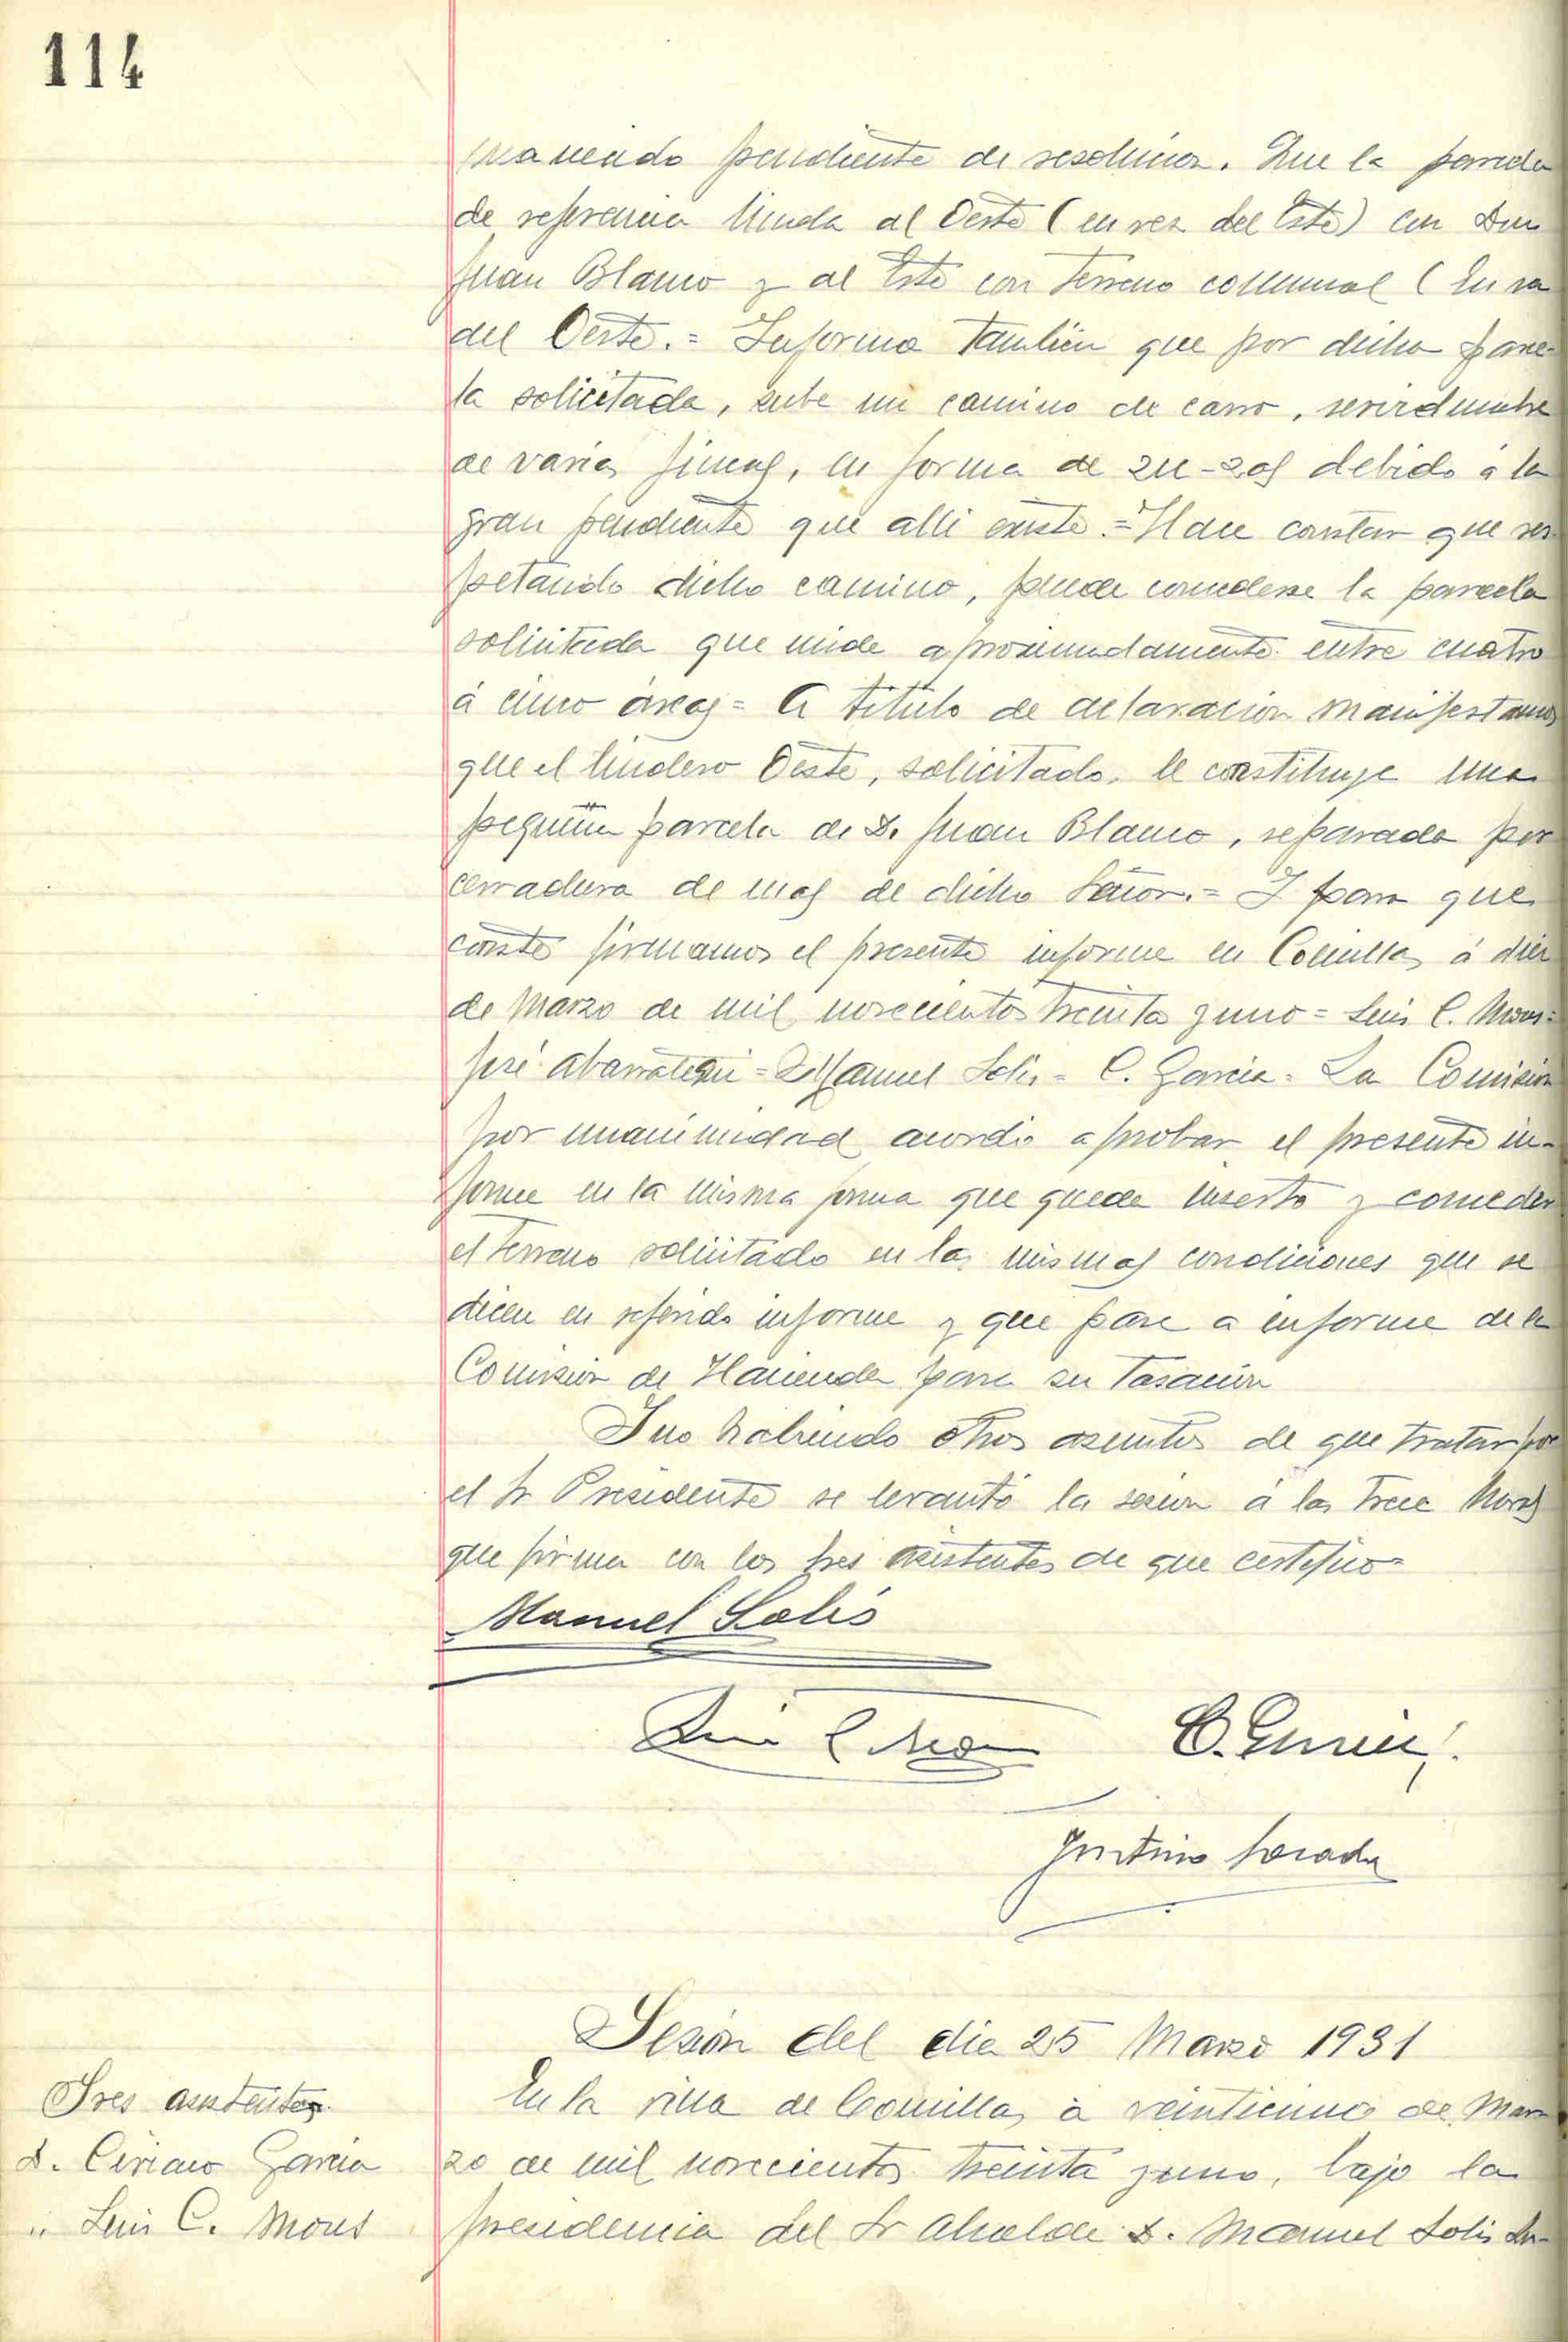 114
pendiente de resolución. Que la parcela
de referencia linda al Oeste (en vez del Este) con Don
Juan Blanco y al Este con terreno comunal (En vez
del Oeste.= Informa tambien que por dicha parce-
la solicitada, sube un camino de carro, servidumbre
de varias fincas, en forma de zig-zag debido á la
gran pendiente que alli existe.= Hace constar que res-
petando dicho camino, puede concederse la parcela
solicitada que mide aproximadamente entre cuatro
á cinco áreas= A titulo de aclaración manifestamos
que el lindero Oeste, solicitado, le constituye una
pequeña parcela de D. Juan Blanco, separada por
cerradura de mas de dicho Señor.= Y para que
conste firmamos el presente informe en Comillas á diez
de Marzo de mil novecientos treinta y uno= Luis C. Mons=
José Abarrategui= Manuel Solis= C. Garcia= La Comisión
por unanimidad acordó aprobar el presente in-
forme en la misma forma que queda inserto y conceder
el terreno solicitado en las mismas condiciones que se
dicen en referido informe y que pase a informe de la
Comision de Hacienda para su Tasación
Y no habiendo otros asuntos de que tratar por
el Sr Presidente se levantó la sesion á las trece horas
que firma con los Sres asistentes de que certifico=
Manuel Solis
Luis C. Mons C. Garcia
Justino Posada
Sesión del dia 25 Marzo 1931
Sres asistentes.
D. Ciriaco Garcia
" Luis C. Mons
En la villa de Comillas, á veinticinco de Mar-
zo de mil novecientos treinta y uno, bajo la
presidencia del Sr Alcalde D. Manuel Solis